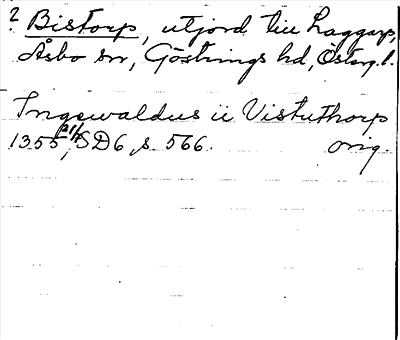 ? Bistorp, utjord till Laggarp,
Åsbo sn, Göstrings hd, Östergl.
Ingewaldus ii Vistuthorp
1355 21/1, SD6, s. 566. orig.